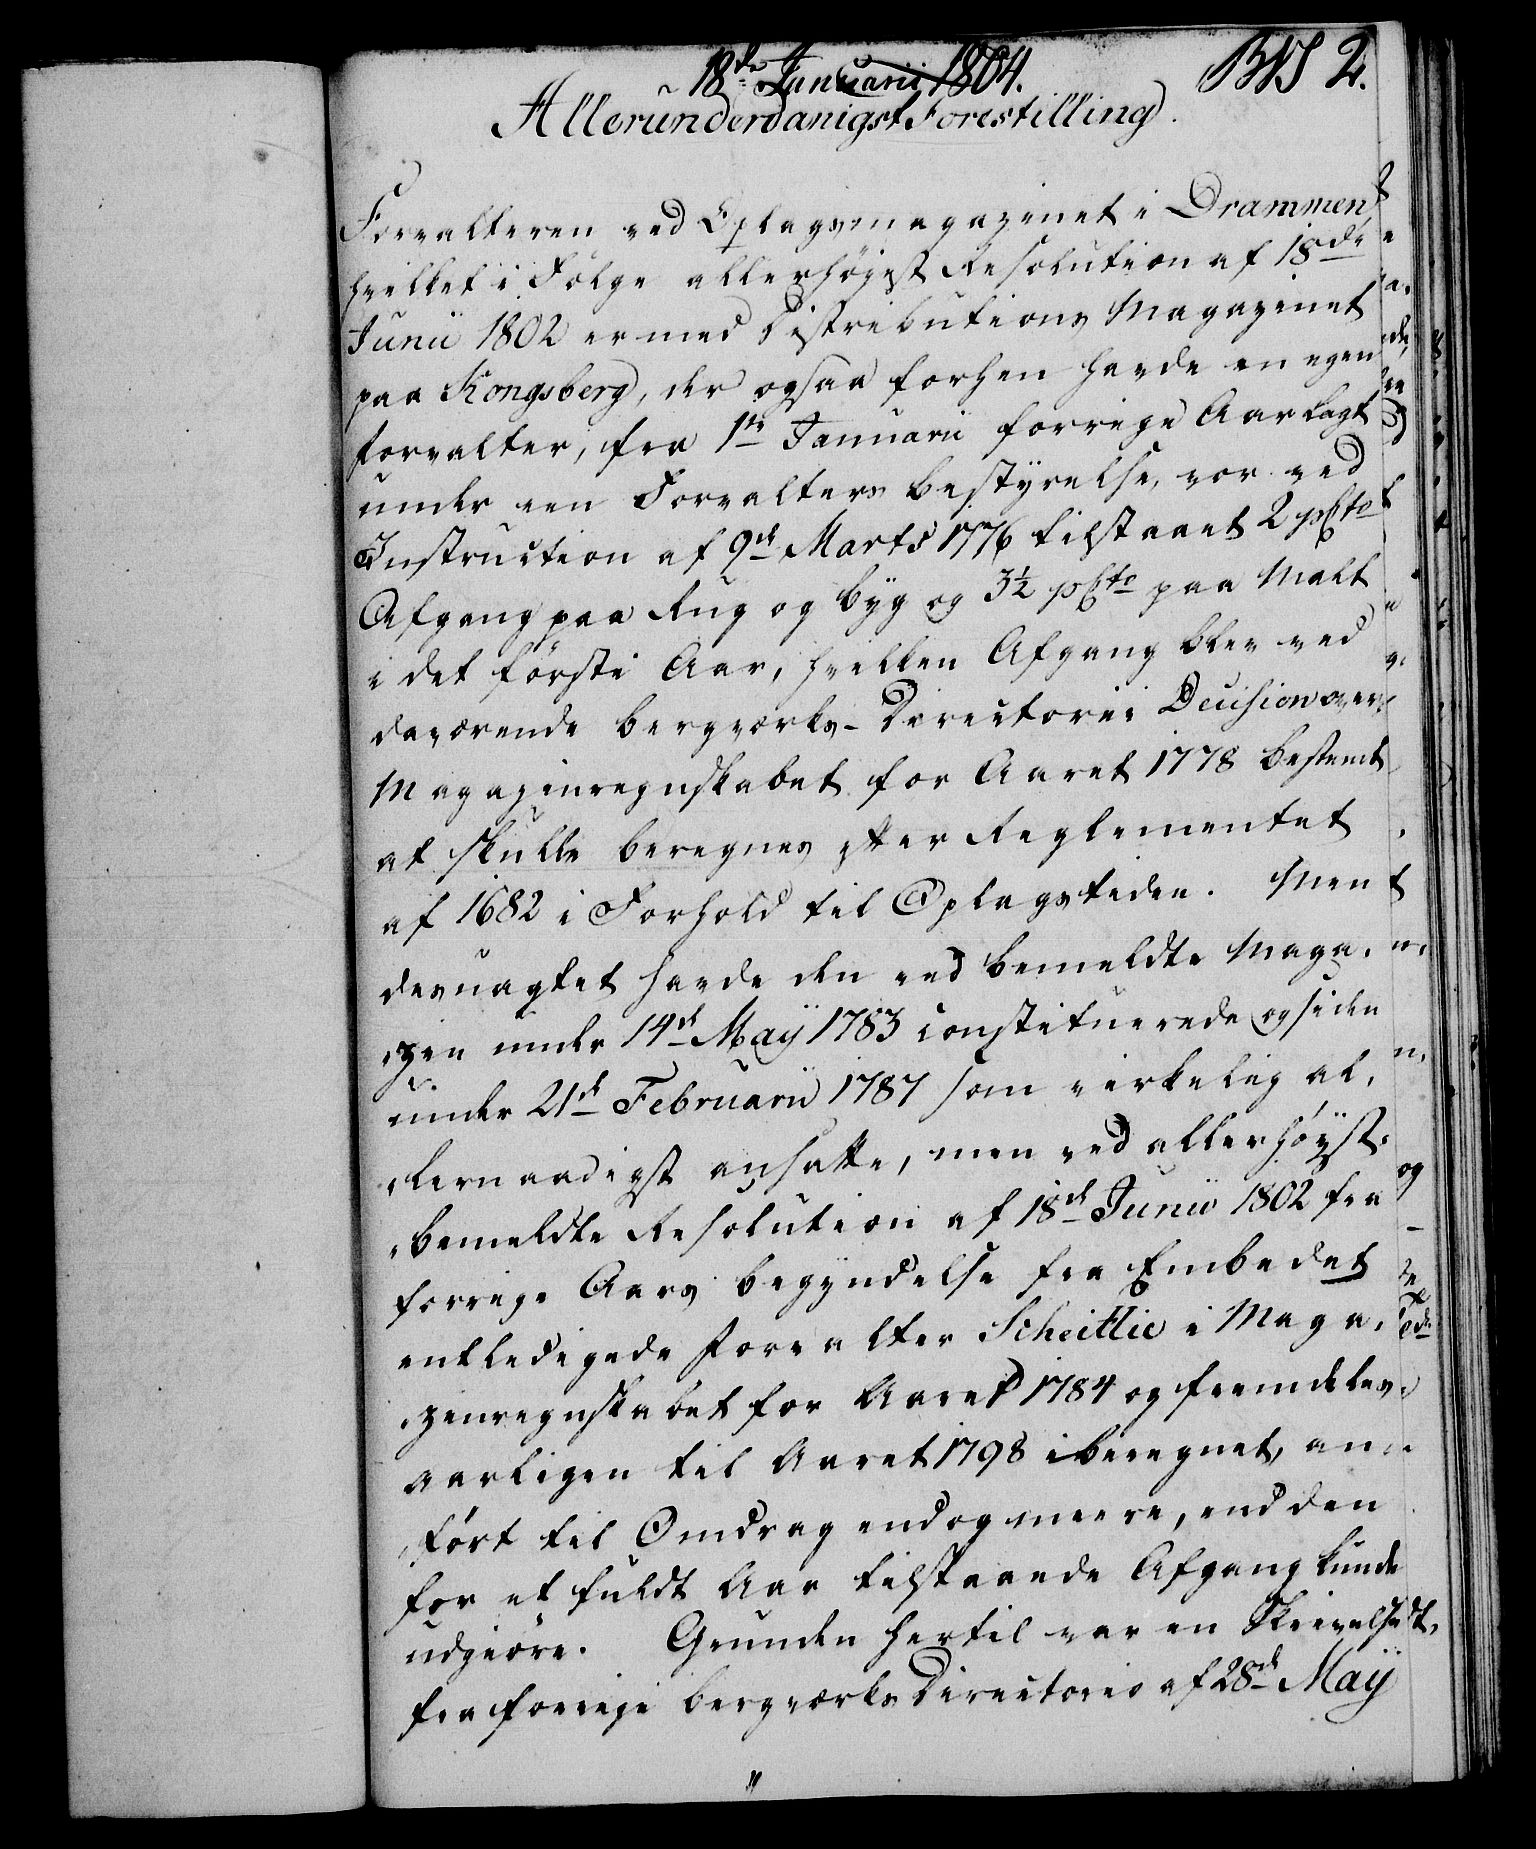 18de Januarii 1804.
BVS 2.
Allerunderdanigst Forestilling.
Forvalteren ved Oplagsmagazinet i Drammen,
hvilket i Følge allerhøyest Resolution af 18de
Junii 1802 er med Distributions Magazinet
paa Kongsberg, der ogsaa forhen havde en egen
Forvalter, fra 1te Januarii forrige Aar lagt
under een Forvalters Bestyrelse, var ved
Instruction af 9de Marts 1776 tilstaaet 2 pCto
Afgang paa Rug og Byg og 3½ pCto paa Malt
i det første Aar, hvilken Afgang blev ved
daværende Bergværks-Directorii Decision over
Magazinregnskabet for Aaret 1778 bestemt
at skulle beregnes efter Reglementet
af 1682 i Forhold til Oplagstiden. Men
desuagtet havde den ved bemeldte Maga-
zin under 14de Maÿ 1783 constituerede og siden
under 21de Februarii 1787 som virkelig al-
lernaadigst ansatte, men ved allerhøyst-
bemeldte Resolution af 18de Junii 1802 fra
forrige Aars Begyndelse fra Embedet
entledigede Forvalter Scheitlie i Maga-
zinregnskabet for Aaret 1784 og fremdeles
aarligen til Aaret 1798 iberegnet, an-
ført til Omdrag endog meere, end den
for et fuldt Aar tilstaaede Afgang kunde
udgiøre. Grunden hertil var en Skrivelse
fra forrige Bergværks Directorio af 28de Maÿ